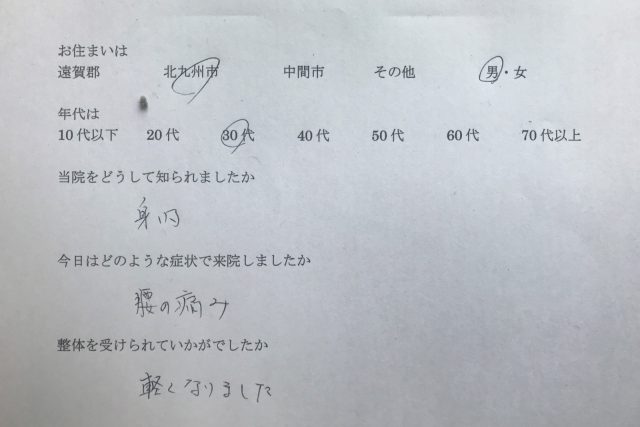 お住まいは
遠賀郡 北九州市 中間市 その他 男・女
年代は
10代以下 20代 30代 40代 50代 60代 70代以上
当院をどうして知られましたか
身内
今日はどのような症状で来院しましたか
腰の痛み
整体を受けられていかがでしたか
軽くなりました